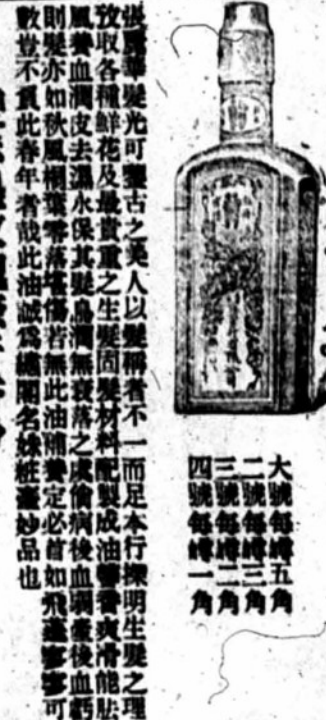 大號每罇五角
二號每罇三角
三號每罇二角
四號每罇一角
張麗華髮光可鑒古之美人以髮稱者不一而足本行探明生髮之理
攷取各種鮮花及最貴重之生髮固髮材料配製成油馨香爽滑能法
風養血潤皮去濕永保其髮烏潤無衰落之虞倘病後血弱產後血虧
則髮亦如秋風桐葉零落堪傷若無此油補養定必首如飛蓬寥寥可
數豈不負此春年者哉此油誠為繡閣名姝粧臺妙品也